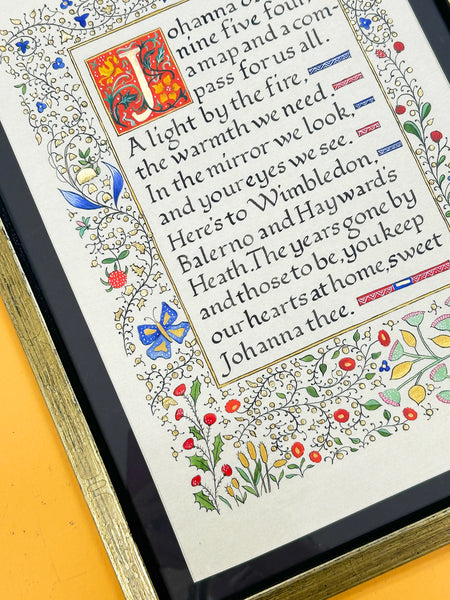 Johanna o
nine five four
a map and a com-
pass for us all.
A light by the fire,
the warmth we need.
In the mirror we look,
and your eyes we see.
Here's to Wimbledon,
Balerno and Hayward's
Heath. The years gone by
and those to be, you keep
our hearts at home, sweet
Johanna thee.